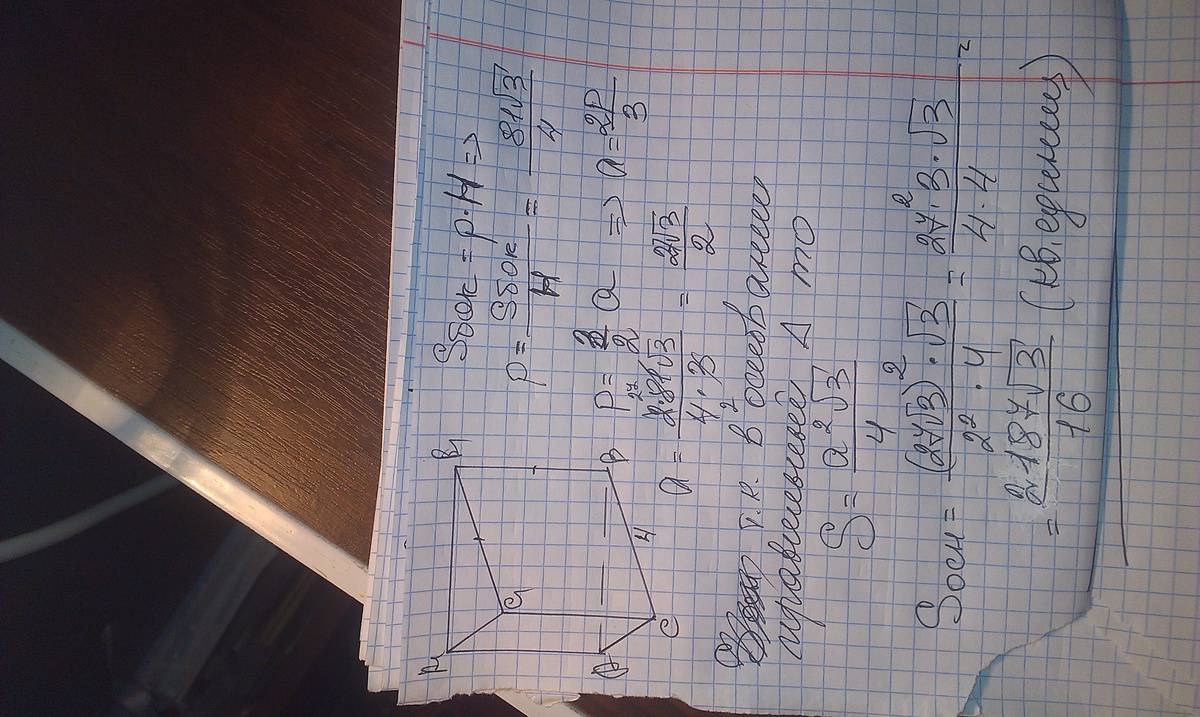 A₁ B₁
C₁
A B
C 4
Sбок = p·H =>
p = Sбок/H = 81√3/4
p = 3/2 a => a = 2p/3
a = 2·81√3/4·3 = 27√3/2
т.к. в основании
правильный Δ то
S = a²√3/4
Sосн = (27√3)²·√3/2²·4 = 27²·3·√3/4·4 =
= 2187√3/16 (кв. единиц)